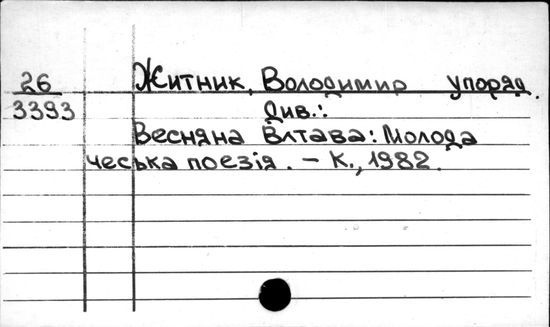 26 Житник, Володимир упоряд.
3393 Див.:
Весняна Влтава: Молода
чеська поезія. – К., 1982.